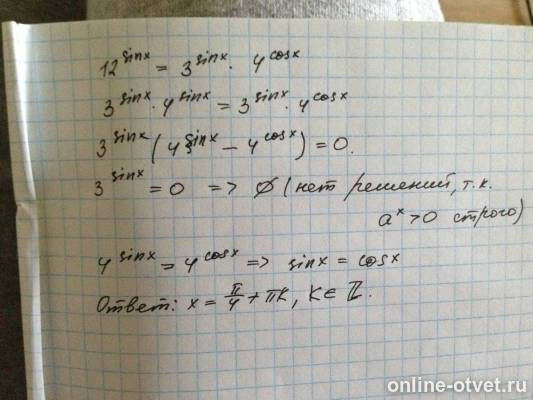 12^sinx = 3^sinx · 4^cosx
3^sinx · 4^sinx = 3^sinx · 4^cosx
3^sinx (4^sinx − 4^cosx) = 0.
3^sinx = 0 => ∅ (нет решений, т.к.
a^x > 0 строго)
4^sinx = 4^cosx => sinx = cosx
Ответ: x = π/4 + πk, k ∈ ℤ.
online-otvet.ru